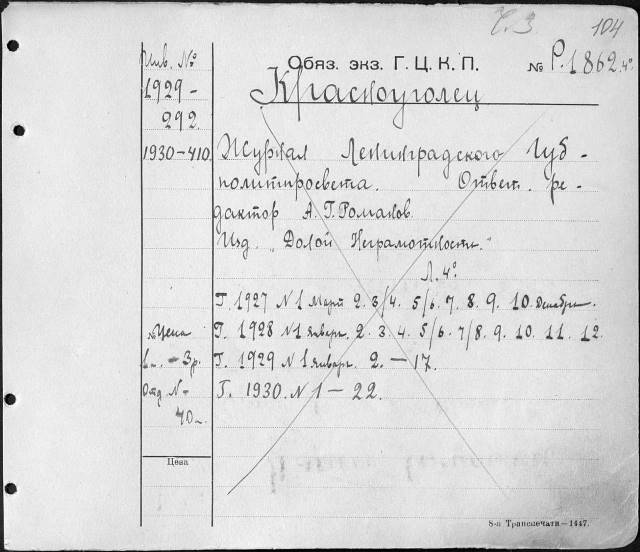 Ч.З 104
Инв. №
Обяз. экз. Г. Ц. К. П. № Р.1862.4°
1929-
292.
Красноуголец
1930-410.
Журнал Ленинградского Губ-
политпросвета. Ответ. ре-
дактор А. Г. Романов.
Изд. "Долой Неграмотность."
Л. 4°.
Г. 1927 N 1 Март 2. 3/4. 5/6. 7. 8. 9. 10 Декабрь.
Цена
Г. 1928 N 1 Январь. 2. 3. 4. 5/6. 7/8. 9. 10. 11. 12.
- 3 р.
Г. 1929 N 1 Январь. 2. - 17.
Отд. N-
40 к.
Г. 1930. N 1 - 22.
Цена
8-я Транспечати—1447.